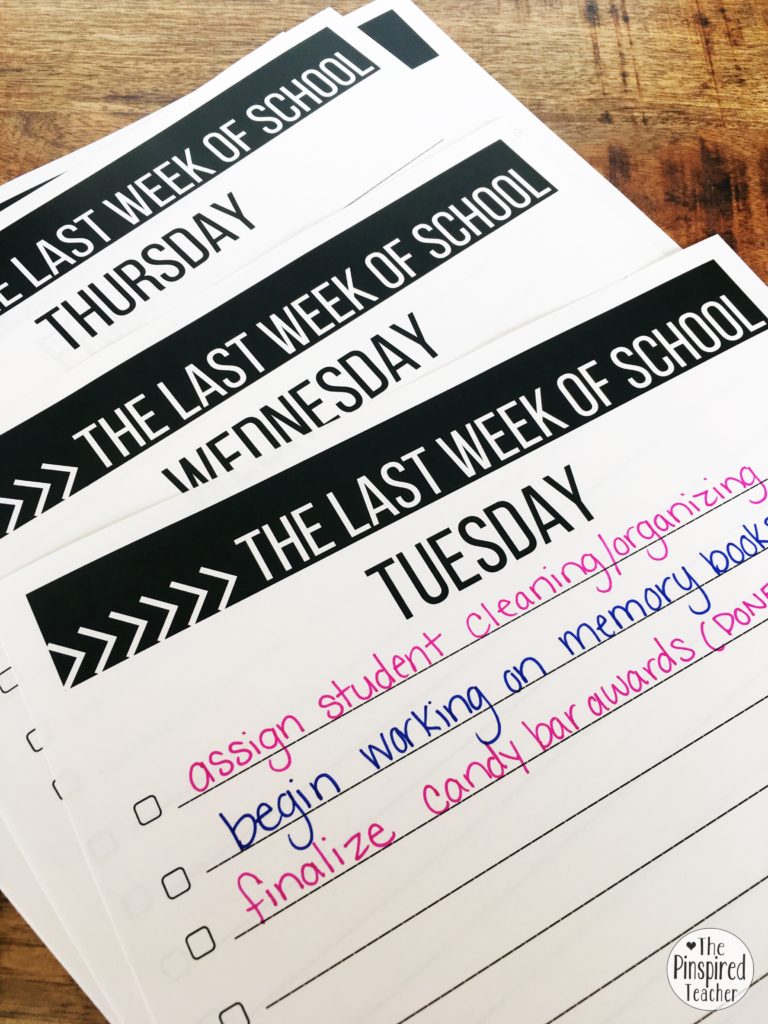 THE LAST WEEK OF SCHOOL
THURSDAY
>>>> THE LAST WEEK OF SCHOOL
WEDNESDAY
>>>>>> THE LAST WEEK OF SCHOOL
TUESDAY
assign student cleaning/organizing
begin working on memory books
finalize candy bar awards (DONE
♥The
Pinspired
Teacher